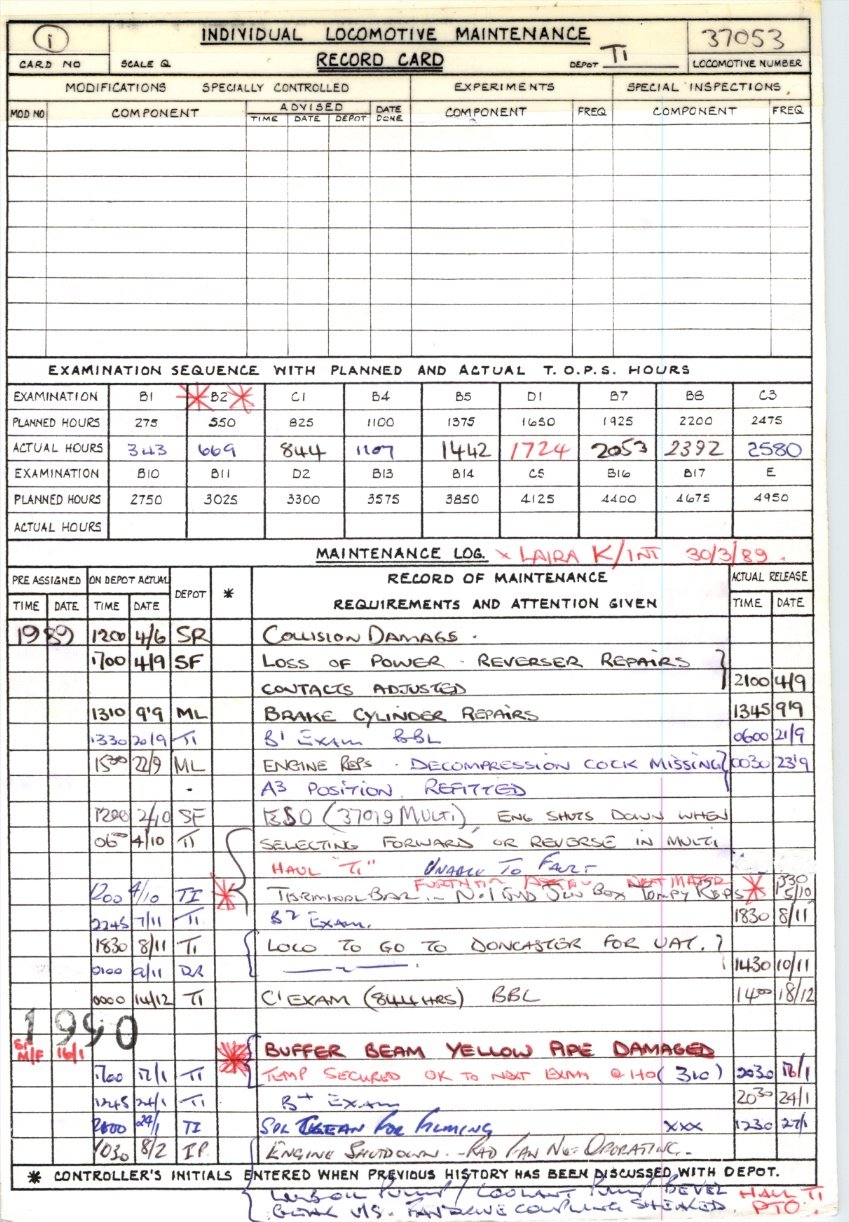 i INDIVIDUAL LOCOMOTIVE MAINTENANCE 37053
CARD NO SCALE Q RECORD CARD DEPOT TI LOCOMOTIVE NUMBER
MODIFICATIONS SPECIALLY CONTROLLED EXPERIMENTS SPECIAL INSPECTIONS
MOD NO COMPONENT ADVISED DATE DONE COMPONENT FREQ COMPONENT FREQ
TIME DATE DEPOT
EXAMINATION SEQUENCE WITH PLANNED AND ACTUAL T.O.P.S. HOURS
EXAMINATION B1 B2 C1 B4 B5 D1 B7 B8 C3
PLANNED HOURS 275 550 825 1100 1375 1650 1925 2200 2475
ACTUAL HOURS 343 669 844 1107 1442 1724 2053 2392 2580
EXAMINATION B10 B11 D2 B13 B14 C5 B16 B17 E
PLANNED HOURS 2750 3025 3300 3575 3850 4125 4400 4675 4950
ACTUAL HOURS
MAINTENANCE LOG. x LAIRA K/INT 30/3/89.
PRE ASSIGNED ON DEPOT ACTUAL DEPOT * RECORD OF MAINTENANCE ACTUAL RELEASE
TIME DATE TIME DATE REQUIREMENTS AND ATTENTION GIVEN TIME DATE
1989 1200 4/6 SR COLLISION DAMAGE.
1700 4/9 SF LOSS OF POWER - REVERSER REPAIRS
CONTACTS ADJUSTED 2100 4/9
1310 9'9 ML BRAKE CYLINDER REPAIRS 1345 9'9
1330 20/9 TI B1 EXAM BBL 0600 21/9
1500 22/9 ML ENGINE REPS - DECOMPRESSION COCK MISSING 0030 23'9
A3 POSITION REFITTED
1200 2/10 SF (37019 MULTI) ENG SHUTS DOWN WHEN
0600 4/10 TI SELECTING FORWARD OR REVERSE IN MULTI
HAUL "TI" UNABLE TO FAULT
1200 4/10 TI TERMINAL BAR IN No.1 END BOX TEMPY REPS 5/10
2245 7/11 TI B2 EXAM. 1830 8/11
1830 8/11 TI LOCO TO GO TO DONCASTER FOR UAT.
0100 9/11 DR 1430 10/11
0000 14/12 TI C1 EXAM (844 HRS) BBL 1400 18/12
1990
M/F 16/1 BUFFER BEAM YELLOW PIPE DAMAGED
1700 17/1 TI TEMP SECURED OK TO NEXT EXAM @ 1140 (310) 2030 17/1
1245 24/1 TI B4 EXAM 2030 24/1
24/1 TI SPL CLEAN FOR FILMING xxx 1230 27/1
1030 8/2 IP ENGINE SHUTDOWN - RAD FAN NOT OPERATING.
* CONTROLLER'S INITIALS ENTERED WHEN PREVIOUS HISTORY HAS BEEN DISCUSSED WITH DEPOT.
LUB OIL PUMP / COOLANT PUMP BEVEL HAUL TI
U/S. FANDRIVE COUPLING SHEARED PTO.